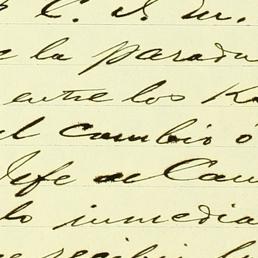 C. I. M.
la parada
entre los K
el cambio ó
Jefe de Cam
lo inmedia
recibir